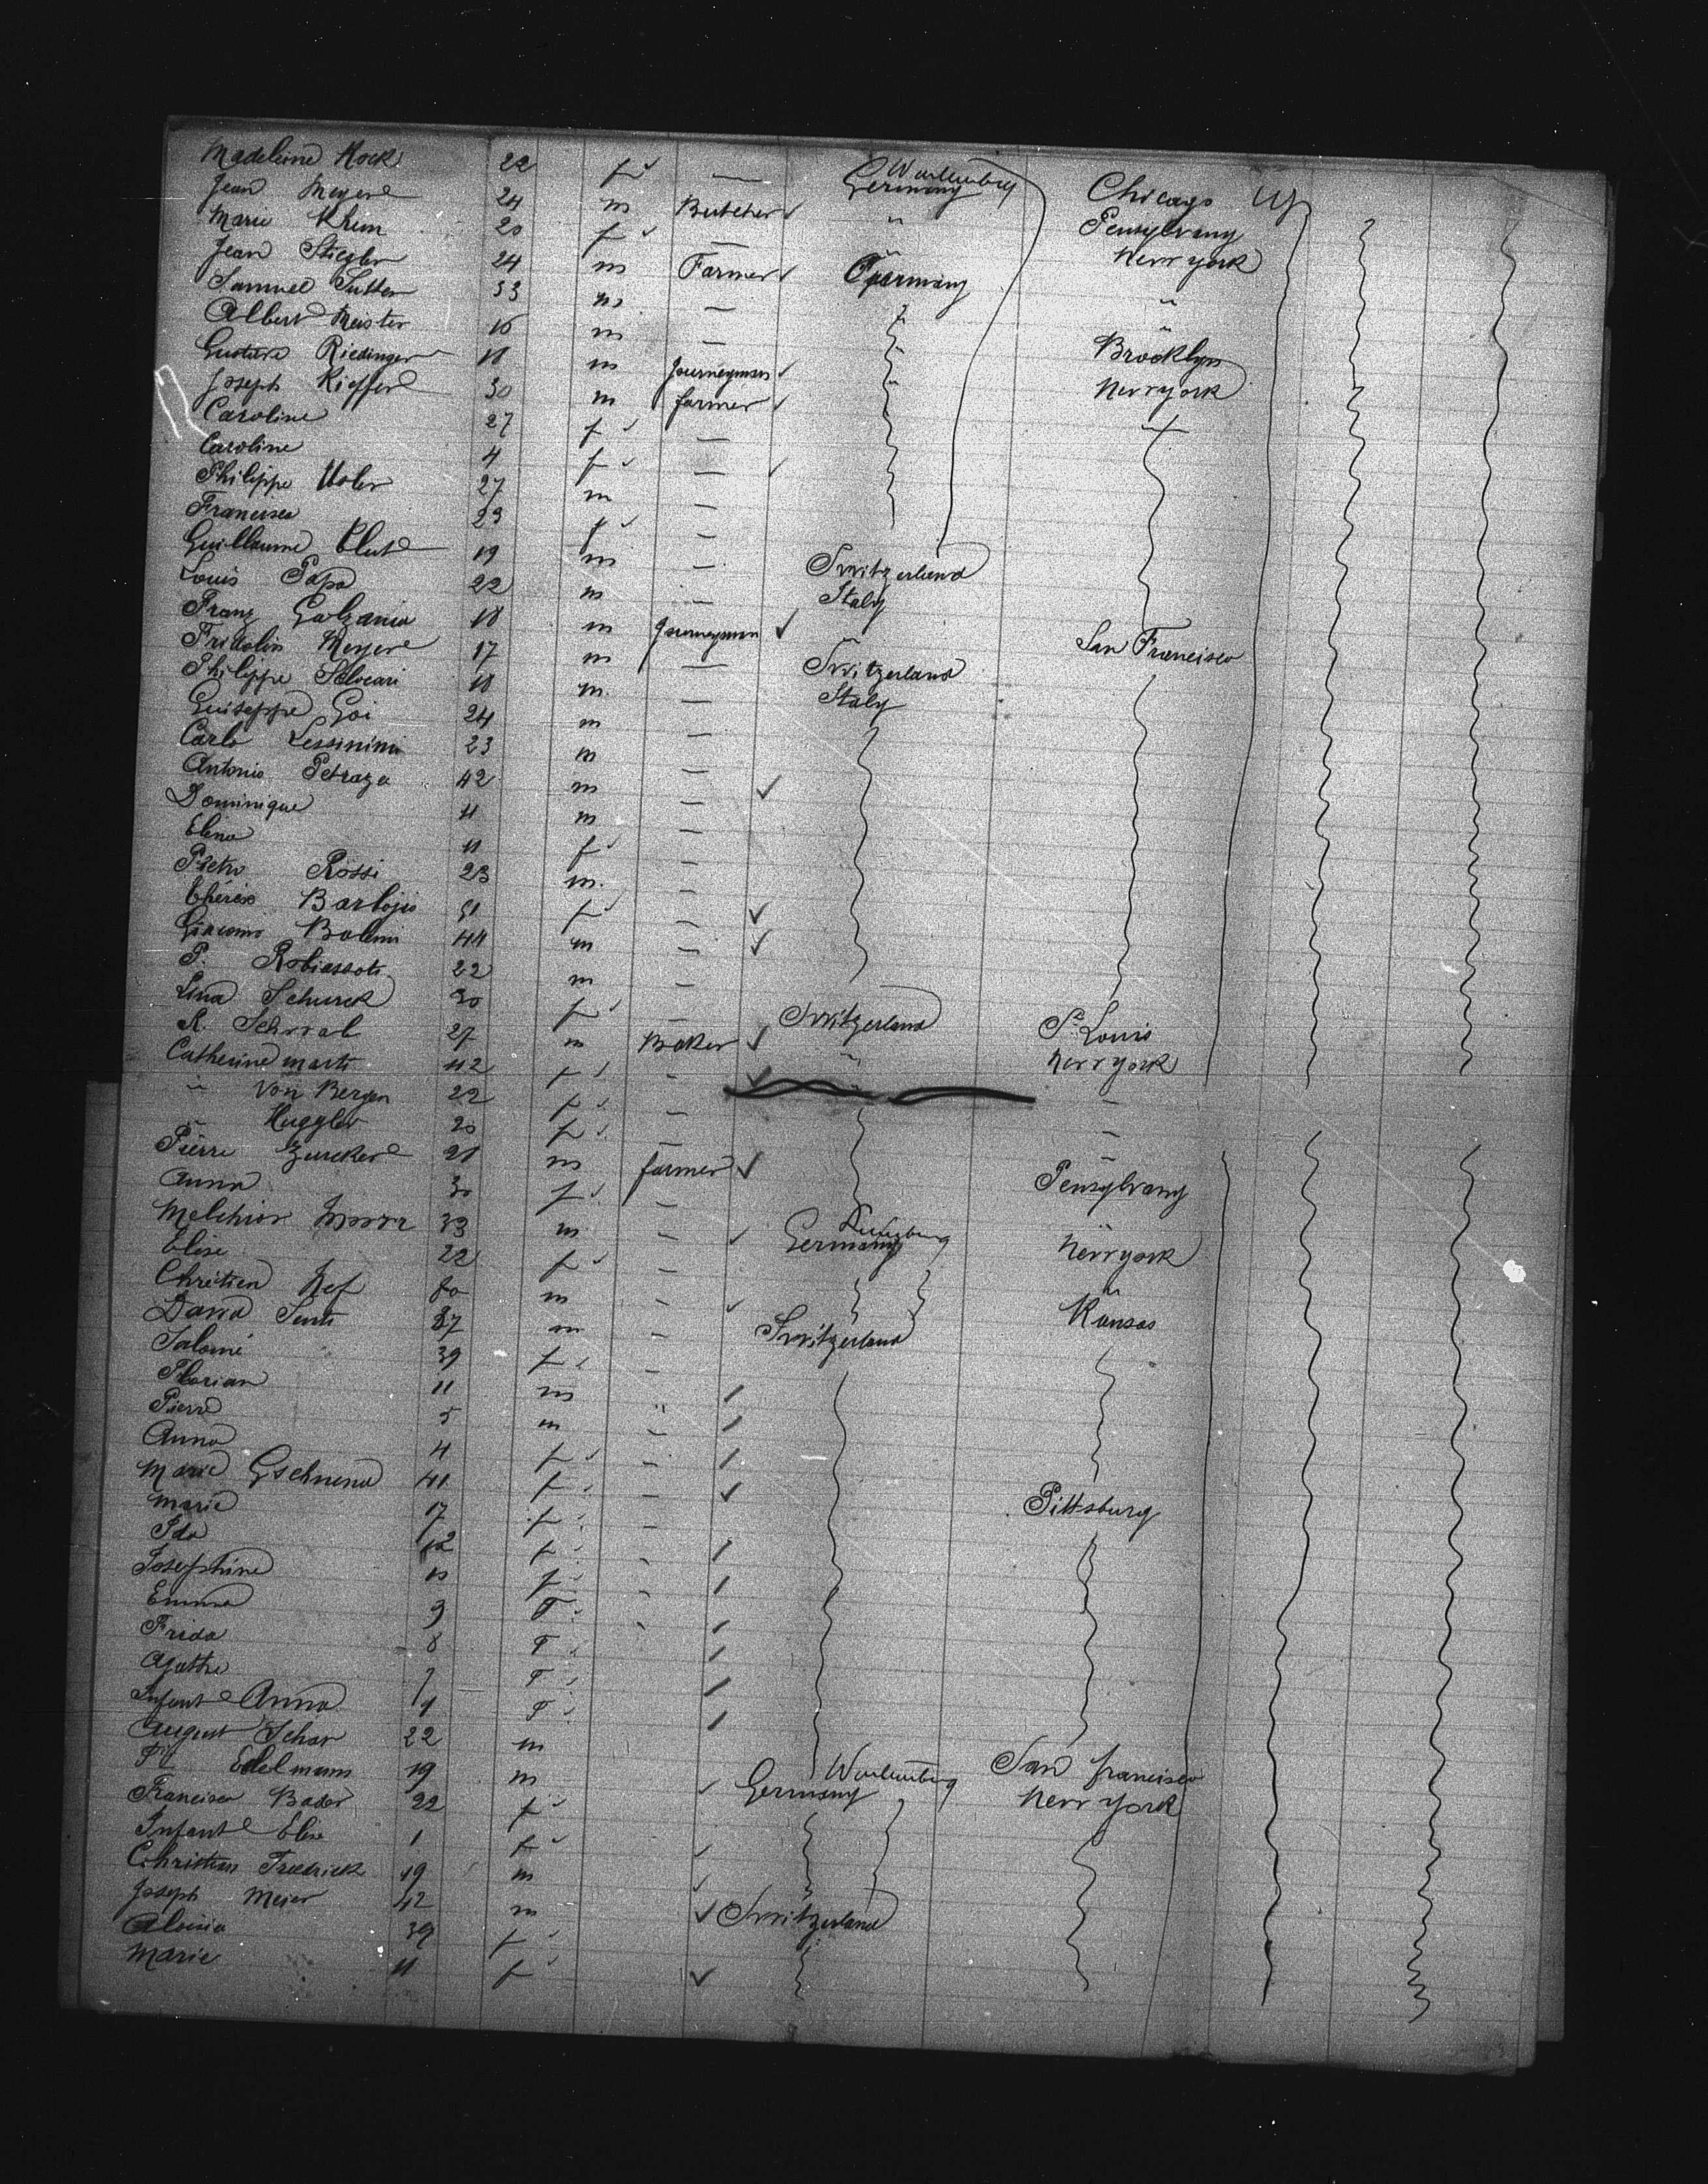 Madeleine Hock 22 f — Wurtemberg Germany Chicago
Jean Meyer 24 m Butcher " Pensylvany
Marie Khim 20 f — New york
Jean Stiegler 24 m Farmer Germany
Samuel Sutter 33 m — "
Albert Meister 16 m — Brooklyn
Gustave Riedinger 18 m Journeyman New york
Joseph Kieffer 30 m farmer
Caroline 27 f —
Caroline 4 f —
Philippe 27 m —
Francisca 23 f —
Guillaume 19 m — Switzerland
Louis Papa 22 m — Italy
Franz Galzania 18 m Journeyman " San Francisco
Fridolin Meyer 17 m — Switzerland
Philippe 18 m. — Italy
Guiseppe Goi 24 m —
Carlo 23 m —
Antonio Petraza 42 m —
Dominique 11 m —
Elena 11 f —
Pietro Rossi 23 m. —
51 f —
Giacomo 44 m —
P. 22 m —
Lina Schurck 30 f — Switzerland St Louis
R. 27 m Baker " New york
Catherine Marti 42 f - "
" Von Bergen 22 f —
" Huggler 20 f —
Pierre Zurcher 21 m farmer Pensylvany
Anna 30 f —
Melchior 33 m — Germany New york
Elise 22 f —
Chrétien Nef m — "
David Senti 37 m — Switzerland Kansas
Salomé 39 f —
Florian 11 m "
Pierre 5 m —
Anna 4 f —
Marie Gschwend 41 f — Pittsburg
Marie 17 f —
Ida 12 f -
Josephine 10 f -
Emma 9 F -
Frida 8 F
Agathe 7 F
Infant Anna 1 F
August Schar 22 m San francisco
Edelmann 19 m Wurtemberg Germany New york
Francisca Bader 22 f
Infant Elise 1 f
Christian Fredrick 19 m
Joseph Meier 42 m Switzerland
Aloisia 39 f
Marie 11 f